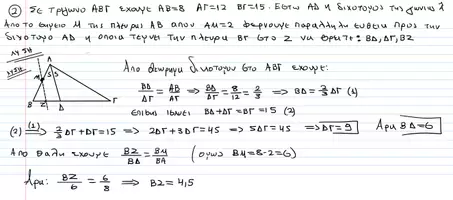 ② Σε τρίγωνο ΑΒΓ έχουμε ΑΒ=8 ΑΓ=12 ΒΓ=15. Έστω ΑΔ η διχοτόμος της γωνίας Α
Από το σημείο Μ της πλευράς ΑΒ όπου ΑΜ=2 φέρνουμε παράλληλη ευθεία προς την
διχοτόμο ΑΔ η οποία τέμνει την πλευρά ΒΓ στο Ζ να βρείτε: ΒΔ, ΔΓ, ΒΖ
ΛΥΣΗ
Από θεώρημα διχοτόμου στο ΑΒΓ έχουμε:
ΒΔ/ΔΓ = ΑΒ/ΑΓ ⇒ ΒΔ/ΔΓ = 8/12 = 2/3 ⇒ ΒΔ = 2/3 ΔΓ (1)
Α
Μ
Β Ζ Δ Γ
επίσης ισχύει ΒΔ+ΔΓ=15 (2)
(2) (1)⇒ 2/3 ΔΓ+ΔΓ=15 ⇒ 2ΔΓ+3ΔΓ=45 ⇒ 5ΔΓ=45 ⇒ ΔΓ=9 Άρα ΒΔ=6
Από Θαλή έχουμε ΒΖ/ΒΔ = ΒΜ/ΒΑ (όμως ΒΜ=8-2=6)
Άρα: ΒΖ/6 = 6/8 ⇒ ΒΖ=4,5